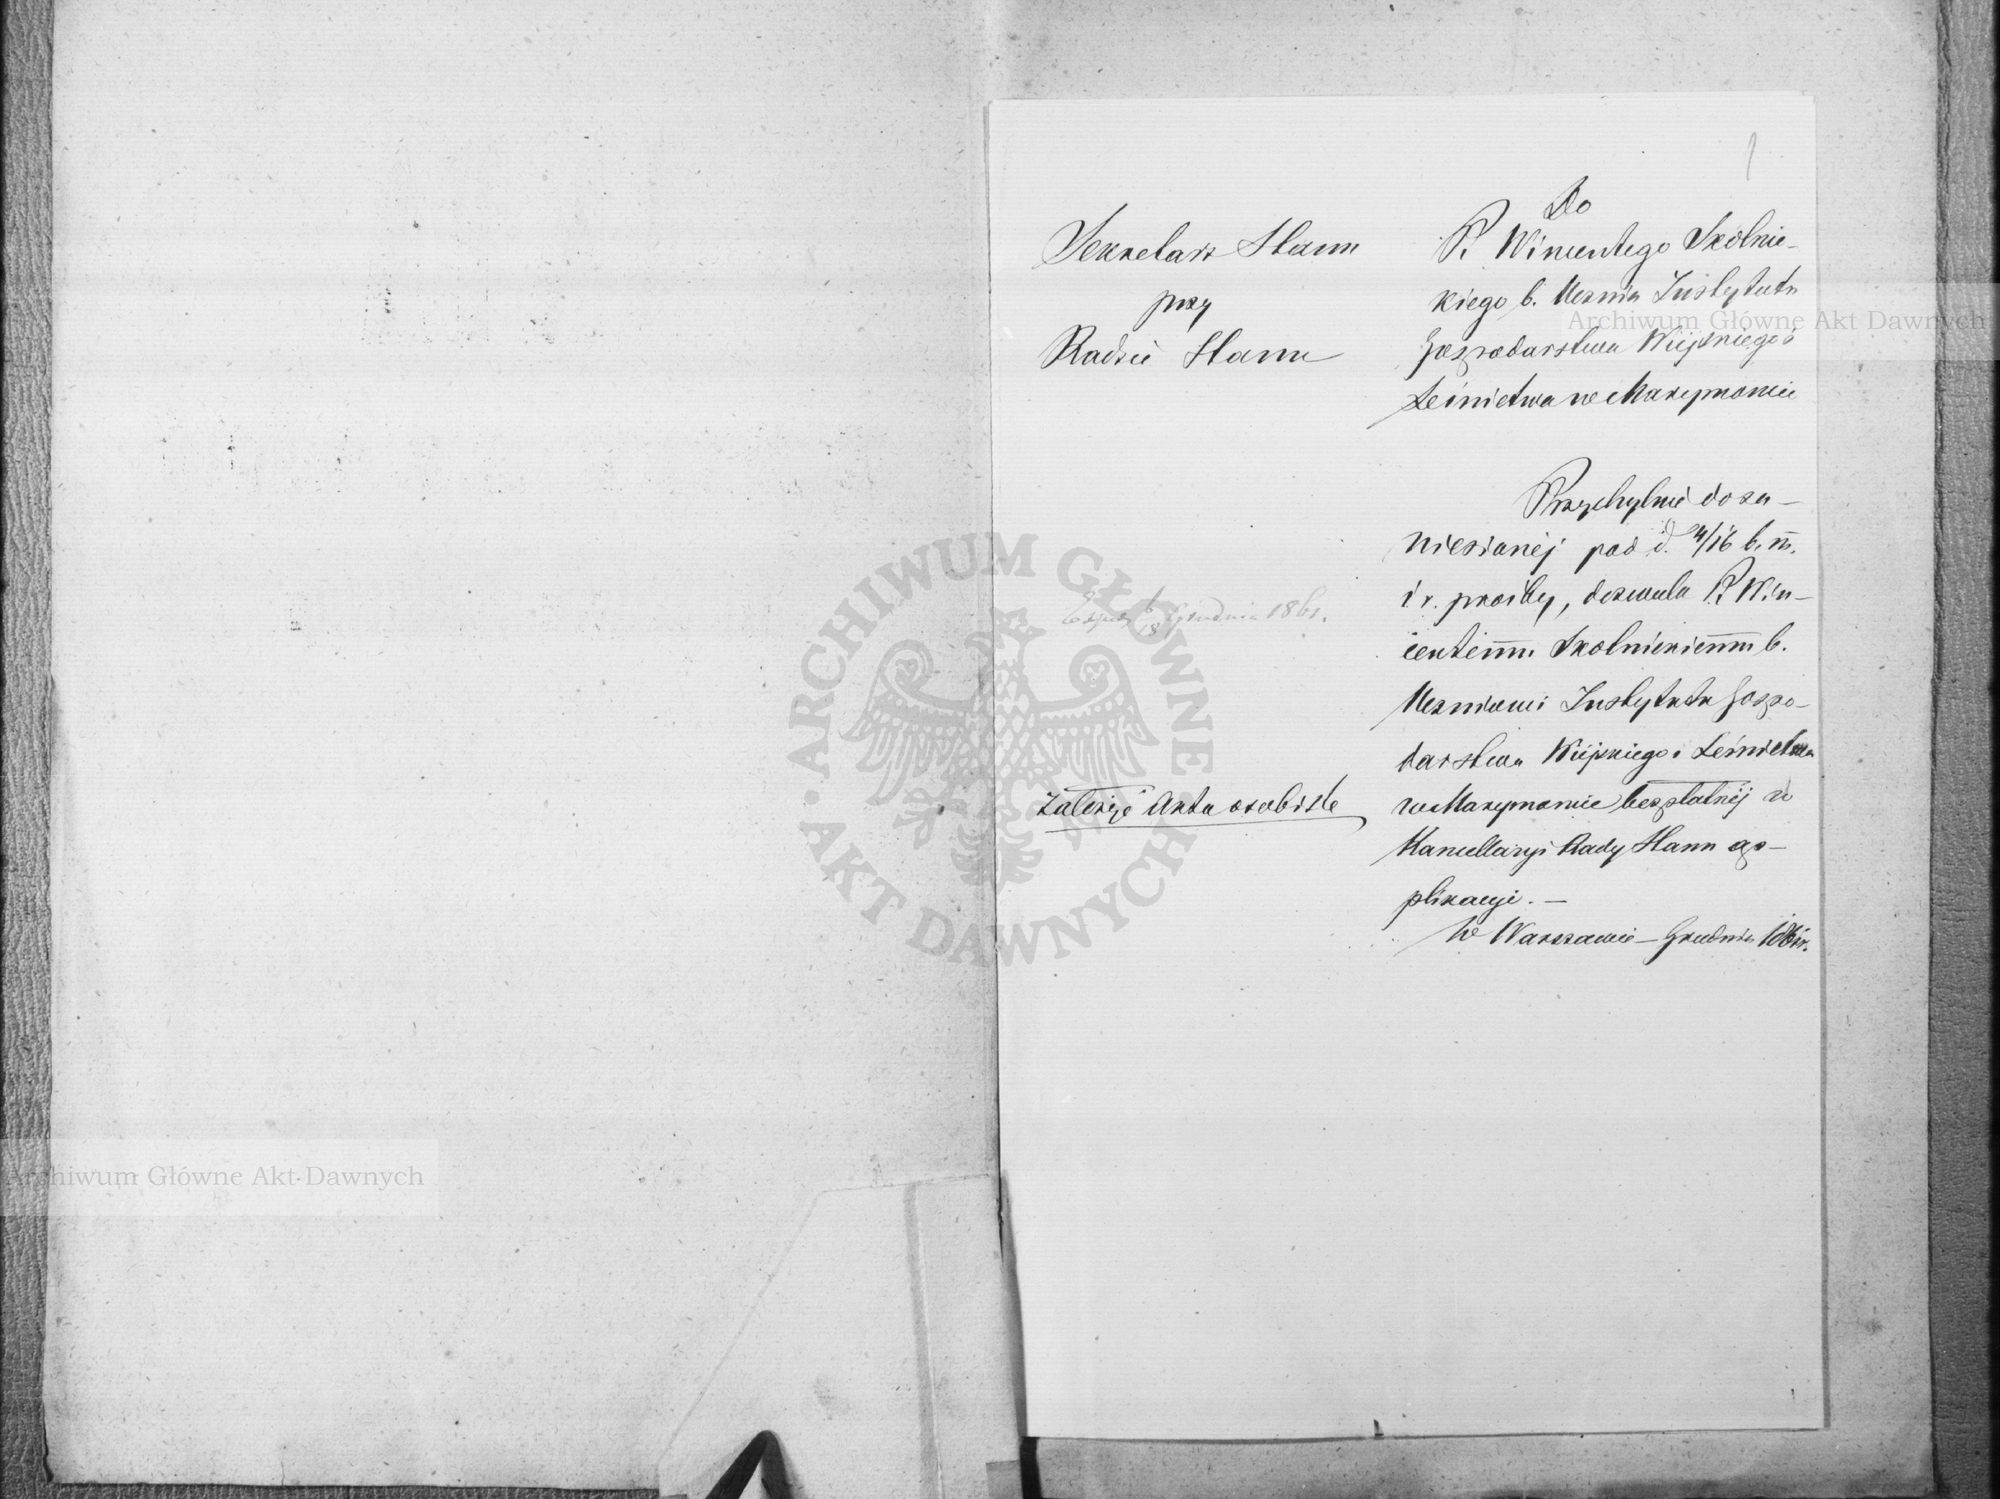 1
Sekretarz Stanu
przy
Radzie Stanu
Do
P. Wincentego Skolnic-
kiego b. Ucznia Instytutu
Gospodarstwa Wiejskiego i
Leśnictwa w Marymoncie
Przychylnie do za-
niesionéj pod d. 4/16 b. m.
i r. prośby, dozwala P. Win-
centemu Skolnickiemu b.
Uczniowi Instytutu Gospo-
darstwa Wiejskiego i Leśnictwa
w Marymoncie bezpłatnéj w
Kancellaryi Rady Stanu ap-
plikacyi. —
w Warszawie — Grudnia 1861 r.
Grudnia 1861.
założyć Akta osobiste
Archiwum Główne Akt Dawnych
Archiwum Główne Akt Dawnych
ARCHIWUM GŁÓWNE AKT DAWNYCH